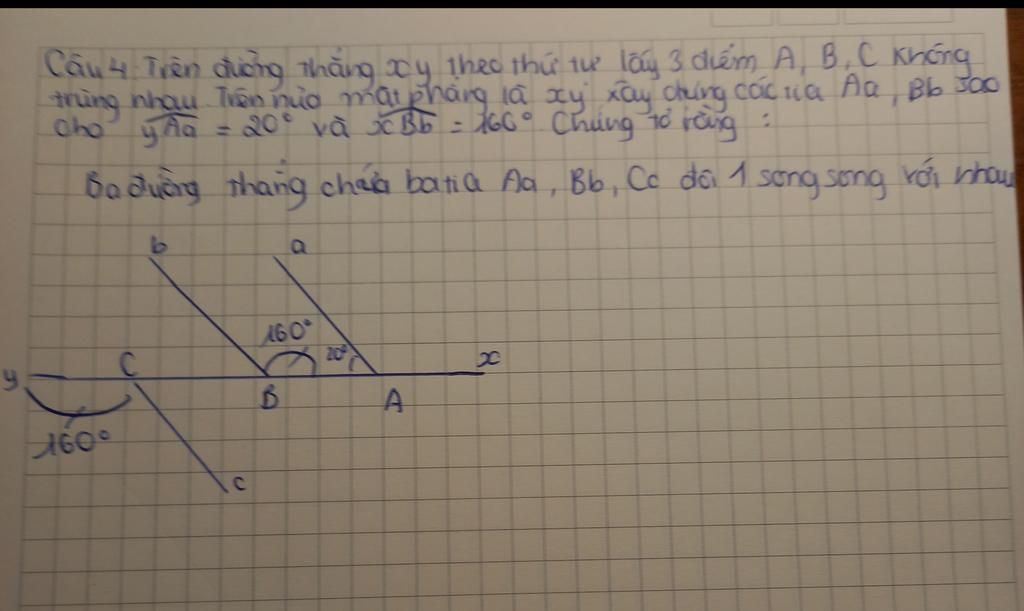 Câu 4 Trên đường thẳng xy theo thứ tự lấy 3 điểm A, B, C không
trùng nhau Trên nửa mặt phẳng là xy xây dựng các tia Aa, Bb sao
cho yAa = 20° và xBb = 160° Chứng tỏ rằng :
Ba đường thẳng chứa ba tia Aa, Bb, Cc đôi 1 song song với nhau
b a
160°
20°
y C x
B A
160°
c